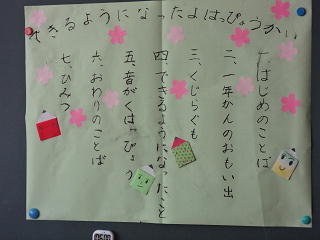 できるようになったよはっぴょうかい
一、はじめのことば
二、一年かんのおもい出
三、くじらぐも
四、できるようになったこと
五、音がくはっぴょう
六、おわりのことば
七、ひみつ